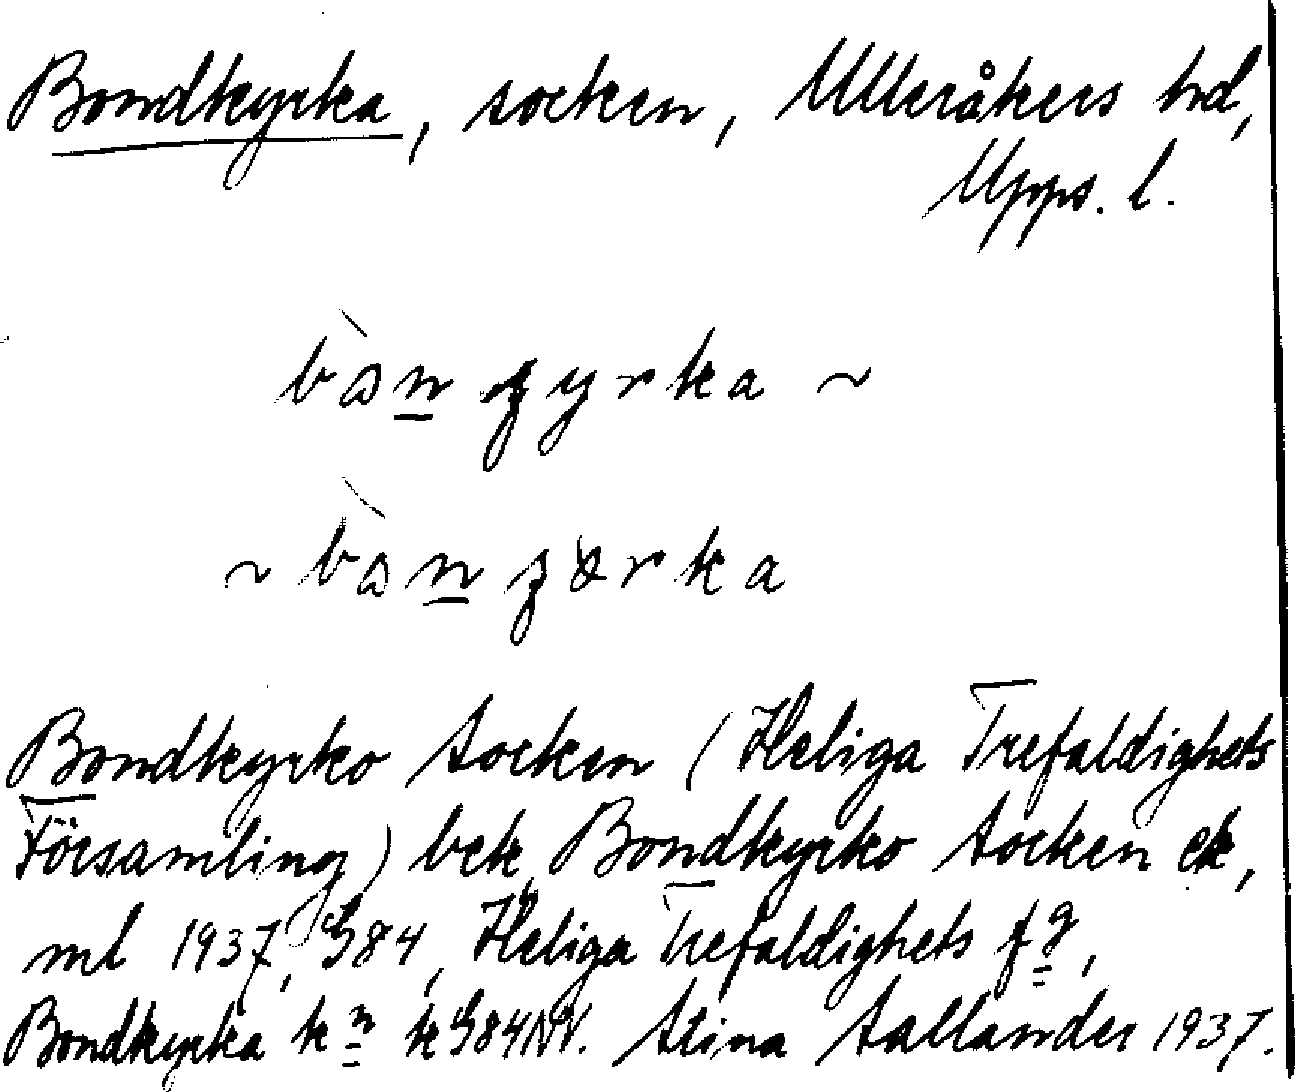 Bondkyrka, socken, Ulleråkers hd,
Upps. l.
bòn̲ ʒyrka ~
~ bòn̲ ʒɤrka
Bondkyrko socken (Heliga Trefaldighets
Församling) bek, Bondkyrko socken ek,
ml 1937, G84, Heliga Trefaldighets fg,
Bondkyrka kn k G84NV. Stina Sallander 1937.